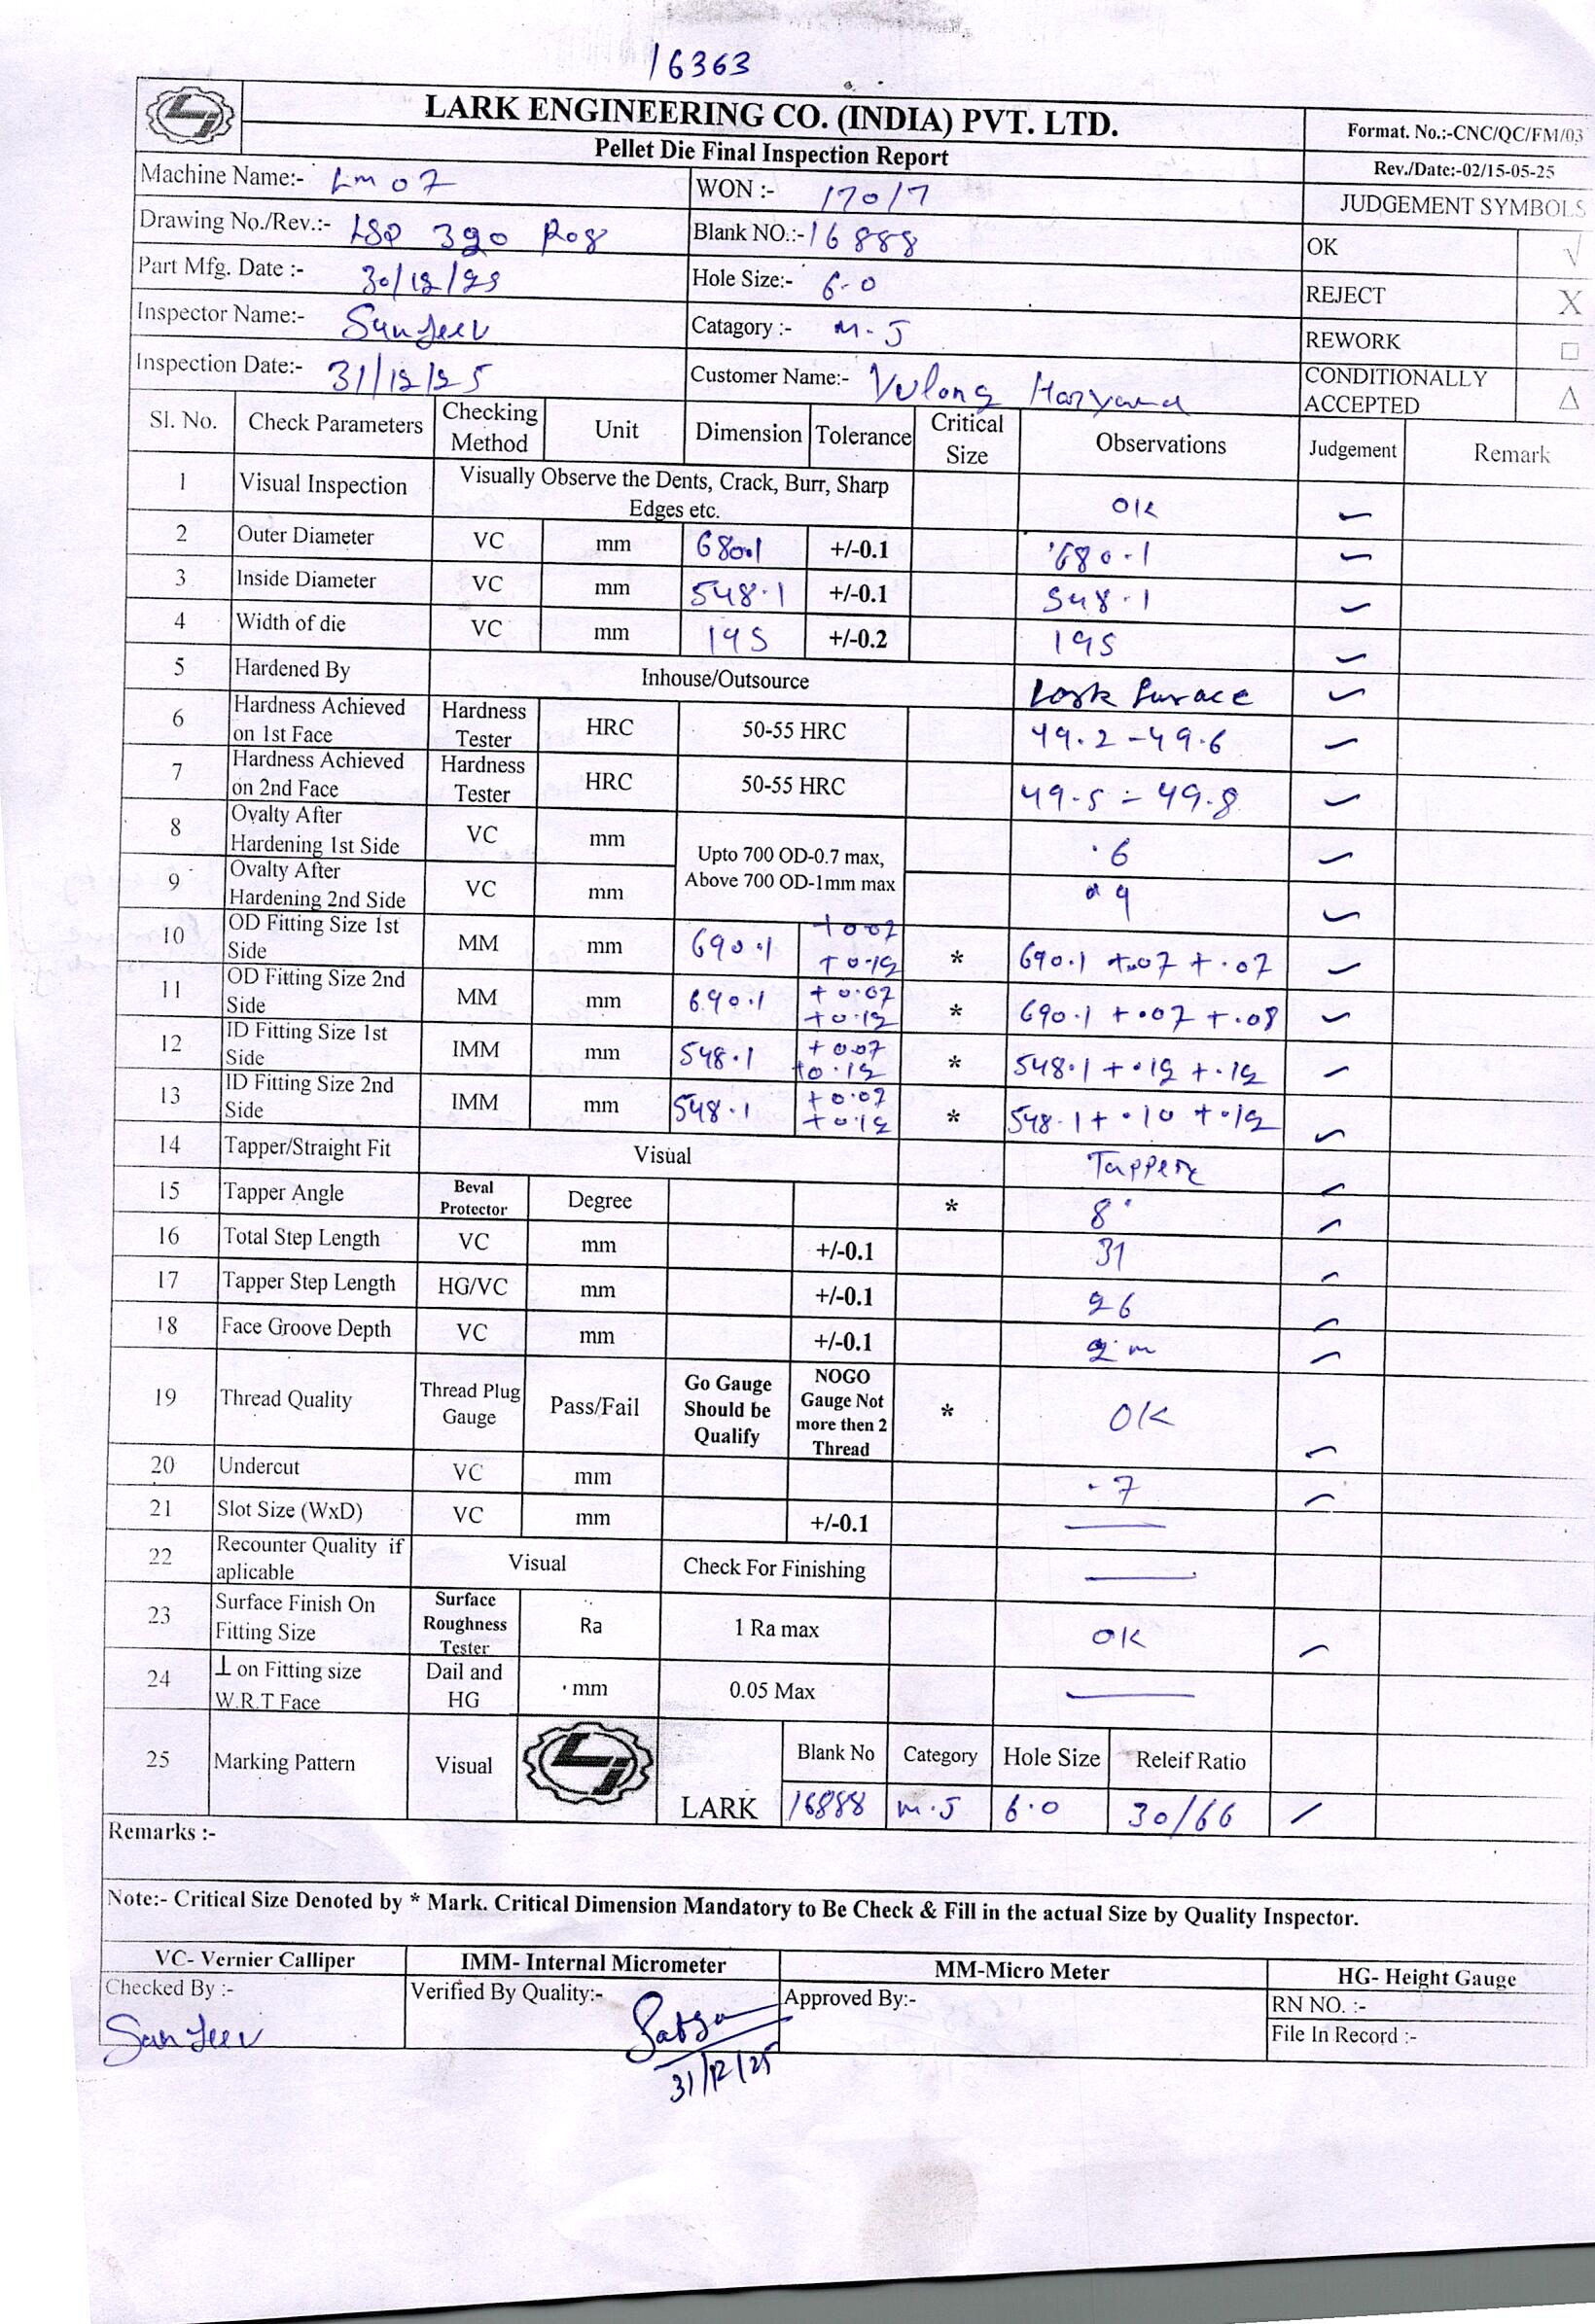 16363
LARK ENGINEERING CO. (INDIA) PVT. LTD.
Pellet Die Final Inspection Report
Format. No.:-CNC/QC/FM/03
Rev./Date:-02/15-05-25
Machine Name:- Lm 07
WON :- 170/7
JUDGEMENT SYMBOLS
Drawing No./Rev.:- LSP 390 R08
Blank NO.:- 16888
OK √
Part Mfg. Date :- 30/12/25
Hole Size:- 6.0
REJECT X
Inspector Name:- SanJeev
Catagory :- M.J
REWORK □
Inspection Date:- 31/12/25
Customer Name:- Yulong Haryana
CONDITIONALLY ACCEPTED △
Sl. No. Check Parameters Checking Method Unit Dimension Tolerance Critical Size Observations Judgement Remark
1 Visual Inspection Visually Observe the Dents, Crack, Burr, Sharp Edges etc. OK
2 Outer Diameter VC mm 680.1 +/-0.1 680.1
3 Inside Diameter VC mm 548.1 +/-0.1 548.1
4 Width of die VC mm 195 +/-0.2 195
5 Hardened By Inhouse/Outsource Lark furace
6 Hardness Achieved on 1st Face Hardness Tester HRC 50-55 HRC 49.2 - 49.6
7 Hardness Achieved on 2nd Face Hardness Tester HRC 50-55 HRC 49.5 - 49.8
8 Ovalty After Hardening 1st Side VC mm Upto 700 OD-0.7 max, Above 700 OD-1mm max .6
9 Ovalty After Hardening 2nd Side VC mm
10 OD Fitting Size 1st Side MM mm 690.1 +0.07 +0.12 * 690.1 +.07 +.07
11 OD Fitting Size 2nd Side MM mm 690.1 +0.07 +0.12 * 690.1 +.07 +.08
12 ID Fitting Size 1st Side IMM mm 548.1 +0.07 +0.12 * 548.1 +.12 +.12
13 ID Fitting Size 2nd Side IMM mm 548.1 +0.07 +0.12 * 548.1 +.10 +.12
14 Tapper/Straight Fit Visual Tapper
15 Tapper Angle Beval Protector Degree * 8°
16 Total Step Length VC mm +/-0.1 31
17 Tapper Step Length HG/VC mm +/-0.1 26
18 Face Groove Depth VC mm +/-0.1 2 m
19 Thread Quality Thread Plug Gauge Pass/Fail Go Gauge Should be Qualify NOGO Gauge Not more then 2 Thread * OK
20 Undercut VC mm .7
21 Slot Size (WxD) VC mm +/-0.1 —
22 Recounter Quality if aplicable Visual Check For Finishing —
23 Surface Finish On Fitting Size Surface Roughness Tester Ra 1 Ra max OK
24 ⊥ on Fitting size W.R.T Face Dail and HG mm 0.05 Max —
25 Marking Pattern Visual LARK Blank No Category Hole Size Releif Ratio
16888 M.J 6.0 30/66
Remarks :-
Note:- Critical Size Denoted by * Mark. Critical Dimension Mandatory to Be Check & Fill in the actual Size by Quality Inspector.
VC- Vernier Calliper IMM- Internal Micrometer MM-Micro Meter HG- Height Gauge
Checked By :- Verified By Quality:- Approved By:- RN NO. :-
SanJeev File In Record :-
31/12/25